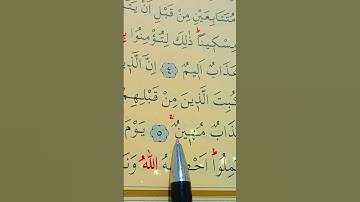 مُتَتَابِعَيْنِ مِنْ قَبْلِ اَنْ يَتَ
مِسْكٖينًا ذٰلِكَ لِتُؤْمِنُوا
عَذَابٌ اَلٖيمٌ ٤ اِنَّ الَّذٖينَ
كُبِتَ الَّذٖينَ مِنْ قَبْلِهِمْ
عَذَابٌ مُهٖينٌ ٥ يَوْمَ
عَمِلُوا اَحْصٰيهُ اللّٰهُ وَنَ